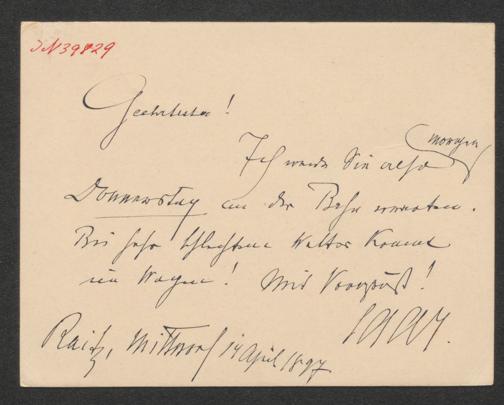 JN 39829
Geehrtester!
Ich werde Sie also morgen
Donnerstag an der Bahn erwarten.
Bei sehr schlechtem Wetter kommt
ein Wagen! Mit
Raitz, Mittwoch 14 April 1897